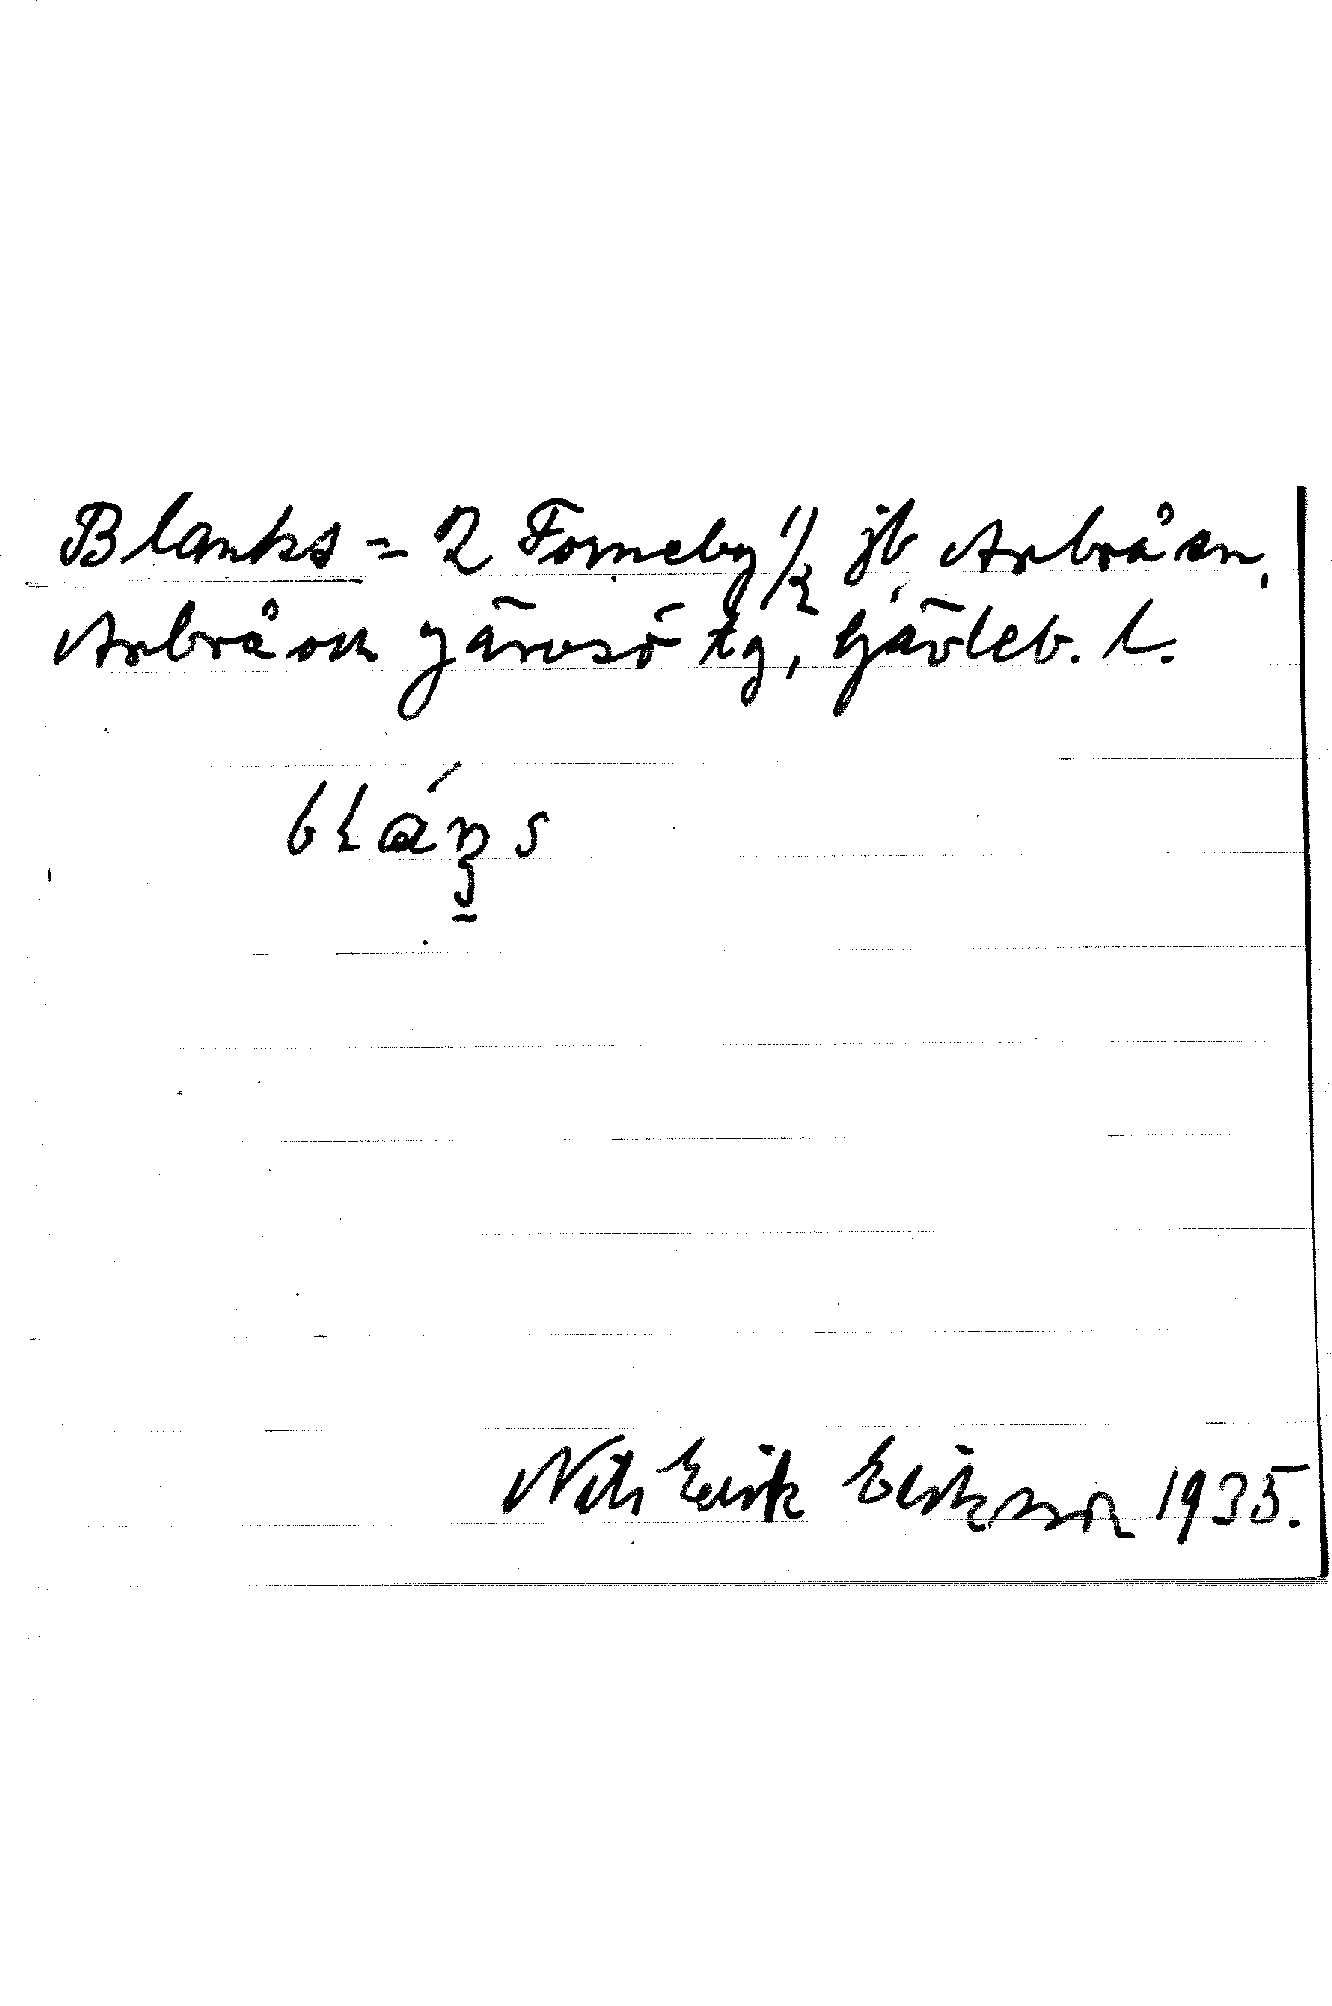 Blanks = 2 Forneby 1/2 jb Arbrå sn,
Arbrå och Järvsö tg, Gävleb. l.
bláŋs
Nils Erik Eriksson 1935.